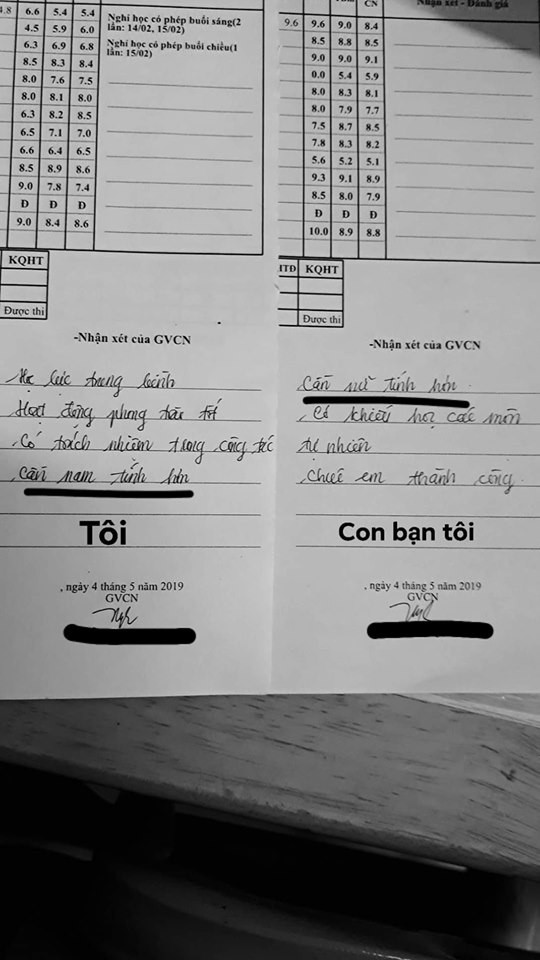 4.8 6.6 5.4 5.4
4.5 5.9 6.0
6.3 6.9 6.8
8.5 8.3 8.4
8.0 7.6 7.5
8.0 8.1 8.0
6.3 8.2 8.5
6.5 7.1 7.0
6.6 6.4 6.5
8.5 8.9 8.6
9.0 7.8 7.4
Đ Đ Đ
9.0 8.4 8.6
Nghỉ học có phép buổi sáng(2
lần: 14/02, 15/02)
Nghỉ học có phép buổi chiều(1
lần: 15/02)
KQHT
Được thi
-Nhận xét của GVCN
Học lực trung bình
Hoạt động phong trào tốt
Có trách nhiệm trong công tác
Cần nam tính hơn
Tôi
, ngày 4 tháng 5 năm 2019
GVCN
CN
Nhận xét - Đánh giá
9.6 9.6 9.0 8.4
8.5 8.8 8.5
9.0 9.0 9.1
0.0 5.4 5.9
8.0 8.3 8.1
8.0 7.9 7.7
7.5 8.7 8.5
7.8 8.3 8.2
5.6 5.2 5.1
9.3 9.1 8.9
8.5 8.0 7.9
Đ Đ Đ
10.0 8.9 8.8
TĐ KQHT
Được thi
-Nhận xét của GVCN
Cần nữ tính hơn
Có khiếu học các môn
tự nhiên
Chúc em thành công
Con bạn tôi
, ngày 4 tháng 5 năm 2019
GVCN